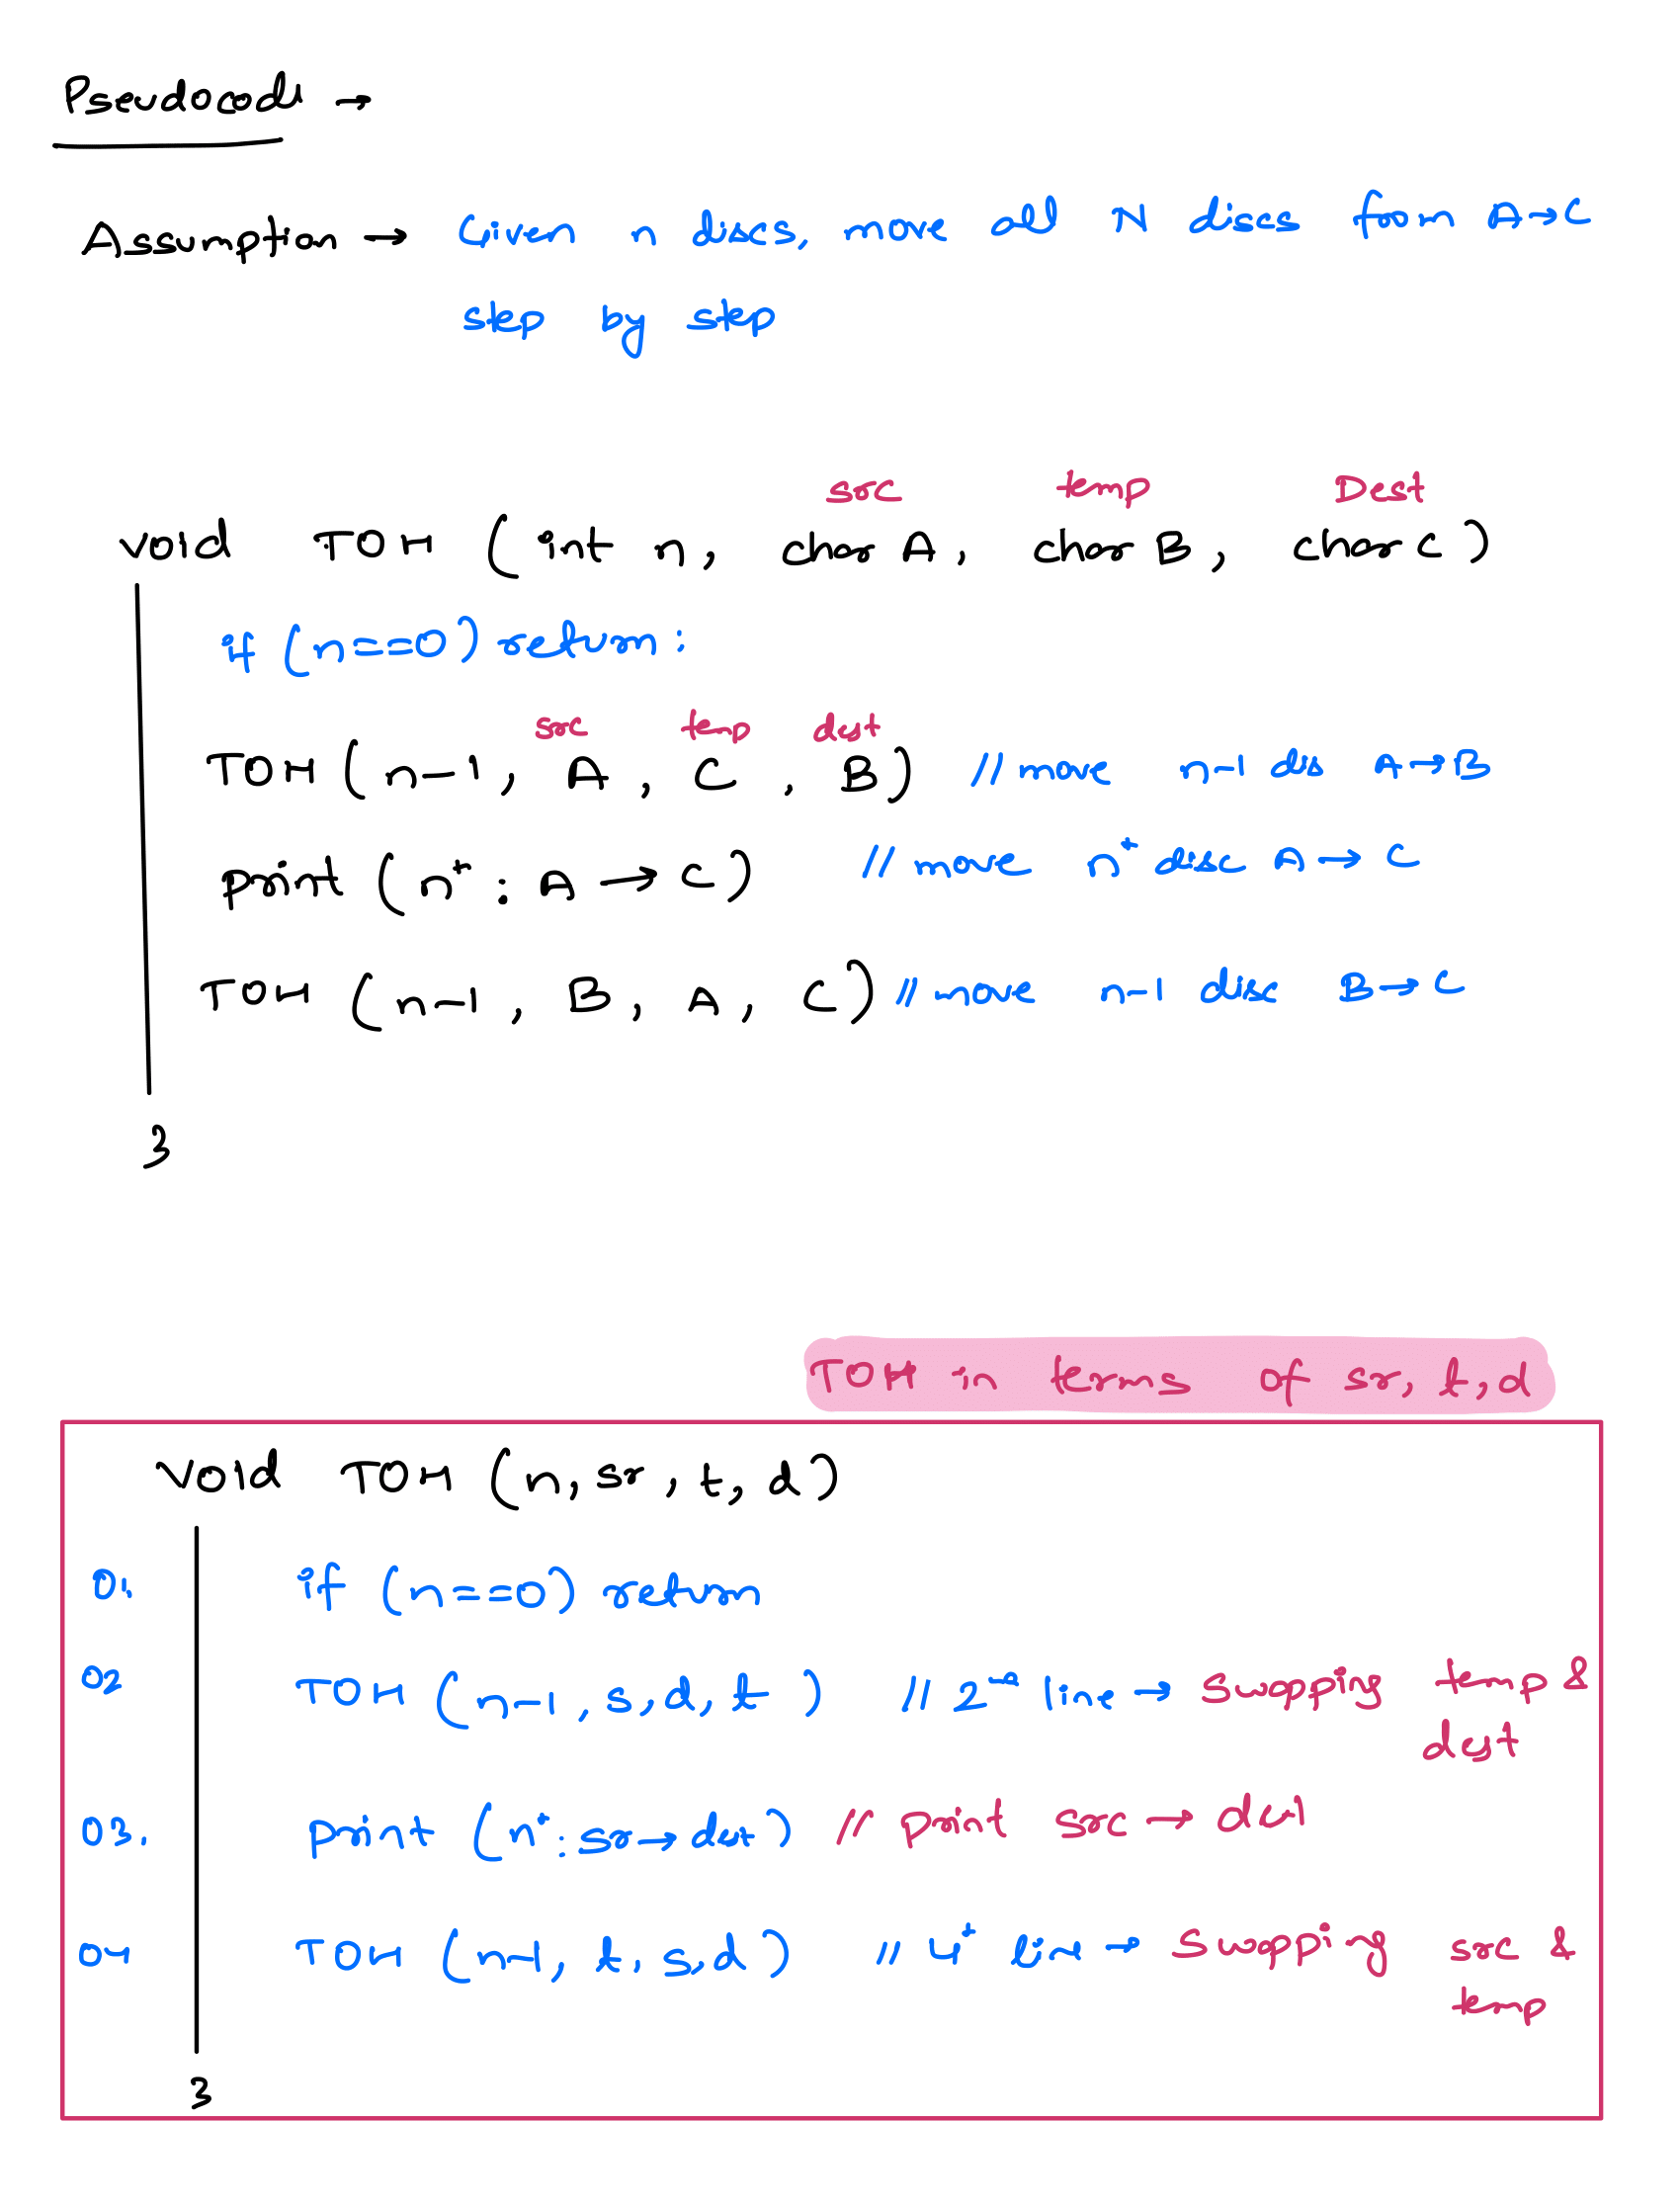 Pseudocode →
Assumption → Given n discs, move all N discs from A→C
step by step
src temp Dest
void TOH (int n, char A, char B, char C)
if (n==0) return;
src temp dest
TOH (n-1, A, C, B) // move n-1 dis A→B
print (nᵗ : A → C) // move nᵗ disc A → C
TOH (n-1, B, A, C) // move n-1 disc B→C
}
TOH in terms of sr, t, d
void TOH (n, sr, t, d)
01. if (n==0) return
02 TOH (n-1, s, d, t) // 2ⁿᵈ line → swapping temp & dest
03. print (nᵗ: sr → dest) // print src → dest
04 TOH (n-1, t, s, d) // 4ᵗ line → swapping src & temp
}